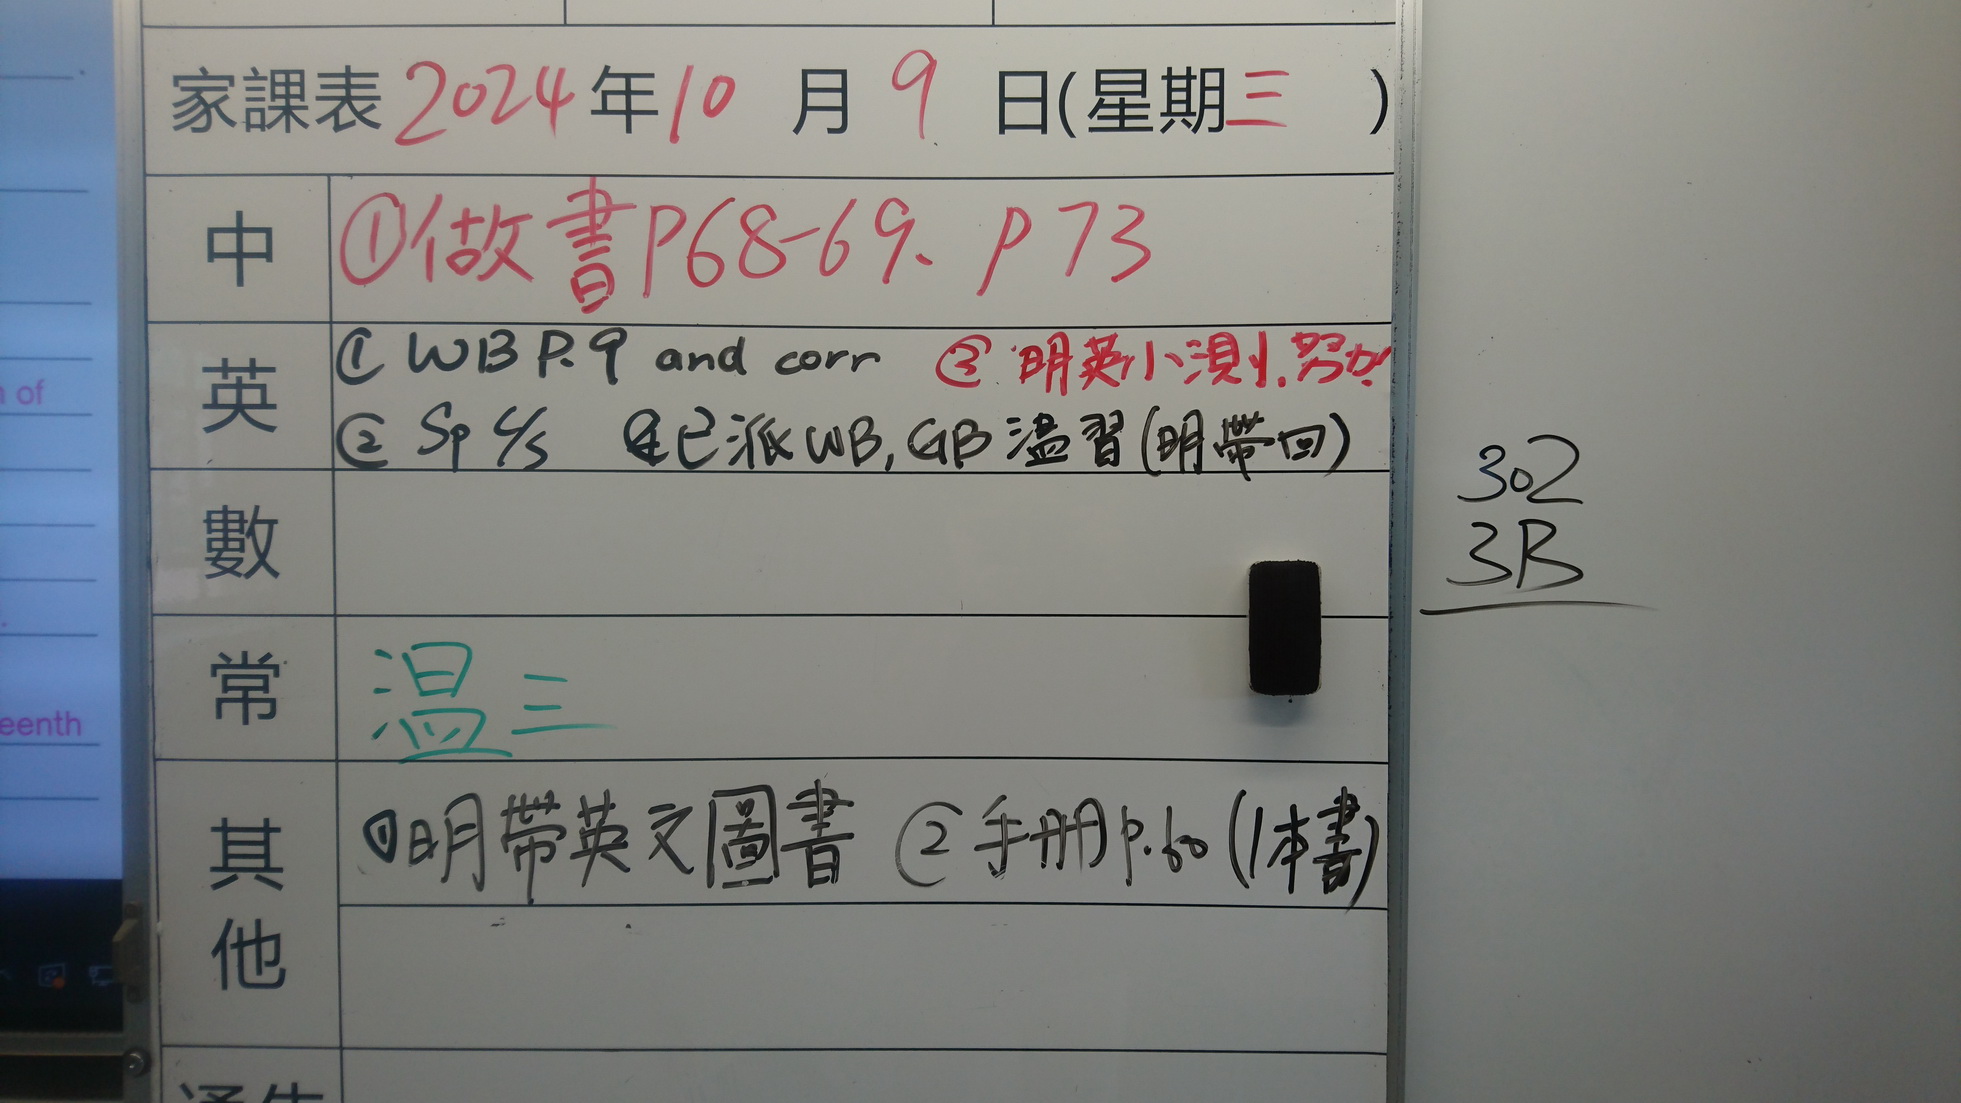 家課表 2024 年 10 月 9 日(星期三)
中 ①做書P68-69、P73
英 ① WB P.9 and corr ③ 明英小測,努力!
② Sp c/s ④已派WB, GB 溫習(明帶回)
數
常 溫三
其他 ①明帶英文圖書 ②手冊p.60 (1本書)
通告
302
3B
n of
eenth